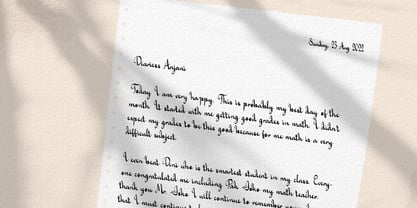 Sunday, 23 Aug 2022
Diaries Anjani
Today I am very happy. This is probably my best day of the
month. It started with me getting good grades in math. I didn't
expect my grades to be this good because for me math is a very
difficult subject.
I even beat Dini who is the smartest student in my class. Every-
one congratulated me including Pak Joko my math teacher.
thank you Mr. Joko I will continue to remember your
that I must continue to